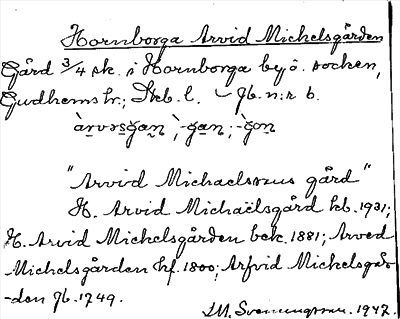 Hornborga Arvid Michelsgården
Gård 3/4 sk. i Hornborga by o. socken,
Gudhems hr; Skb. l. – Jb. n:r 6.
àrvəs̬gan, -gan, -gon
"Arvid Michaelssus gård"
H. Arvid Michaëlsgård kb. 1931;
H. Arvid Michelsgården bek. 1881; Arved
Michelsgården hf. 1800; Arfvid Michelsgår-
-den Jb. 1749.
1947.